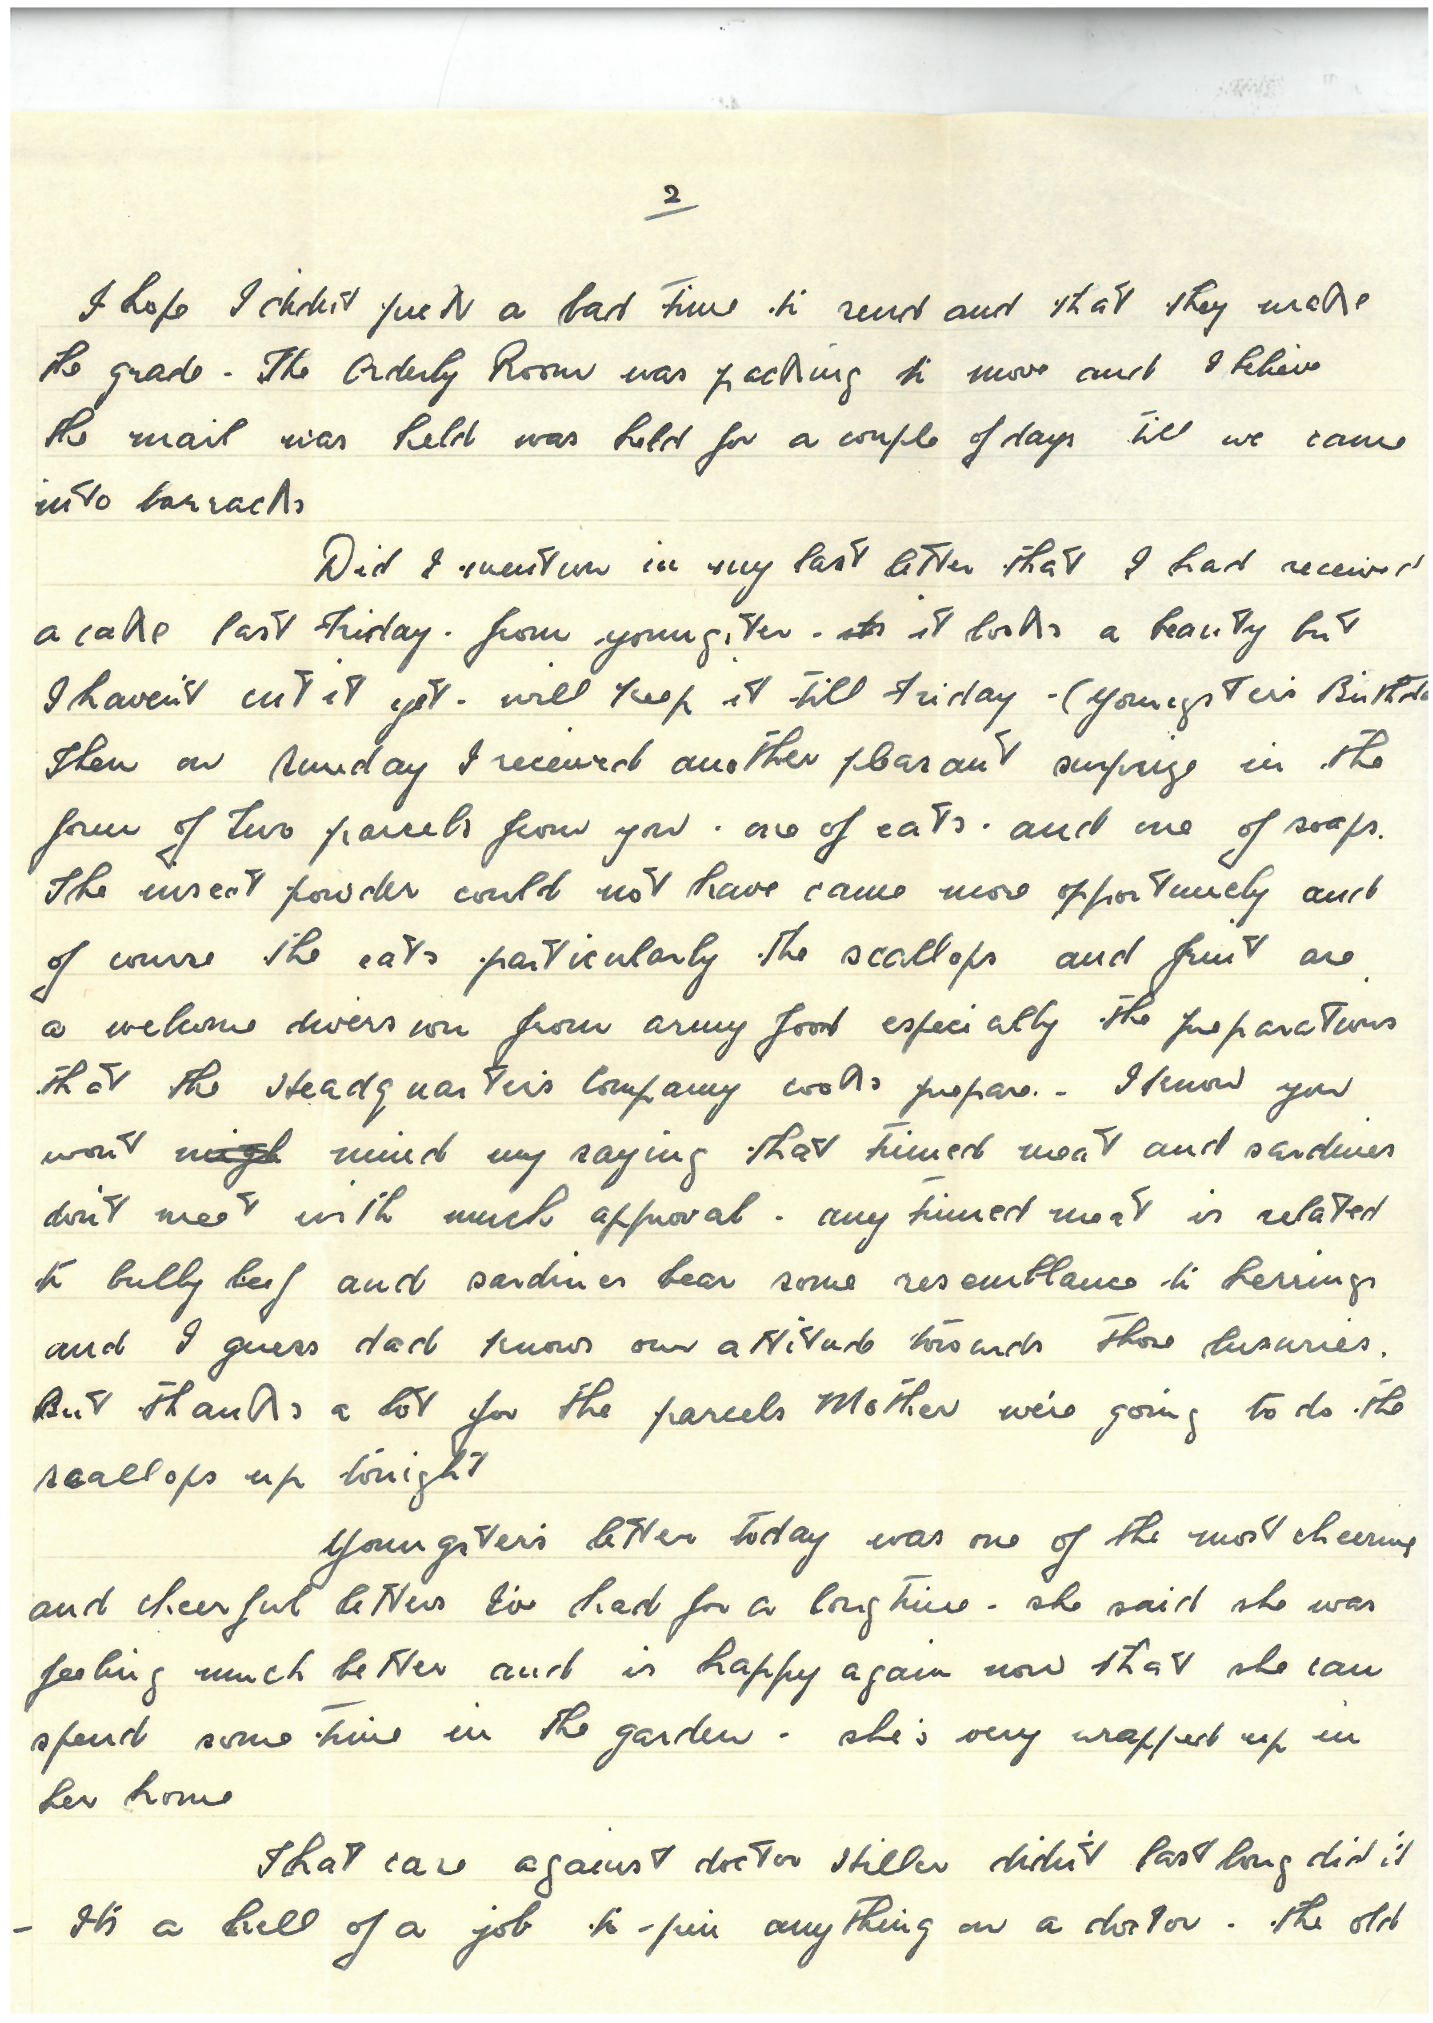 2
I hope I didn't pick a bad time to send and that they make
the grade - The Orderly Room was packing to move and I believe
the mail was held was held for a couple of days till we came
into barracks
Did I mention in my last letter that I had received
a cake last Friday. from youngster - it looks a beauty but
I haven't cut it yet - will keep it till Friday - (Youngsters Birthda
Then on Sunday I received another pleasant surprise in the
form of two parcels from you - one of eats - and one of soaps.
The insect powder could not have came more opportunely and
of course the eats particularly the scallops and fruit are
a welcome diversion from army food especially the preparations
that the Headquarters Company cooks prepare. - I know you
won't mind my saying that tinned meat and sardines
don't meet with much approval - any tinned meat is related
to bully beef and sardines bear some resemblance to herrings
and I guess dad knows our attitude towards those luxuries.
But thanks a lot for the parcels Mother we're going to do the
scallops up tonight
Youngster's letter today was one of the most cheering
and cheerful letters I've had for a long time - she said she was
feeling much better and is happy again now that she can
spend some time in the garden - she's very wrapped up in
her home
That case against doctor Hiller didn't last long did it
- It's a hell of a job to - pin anything on a doctor - the old